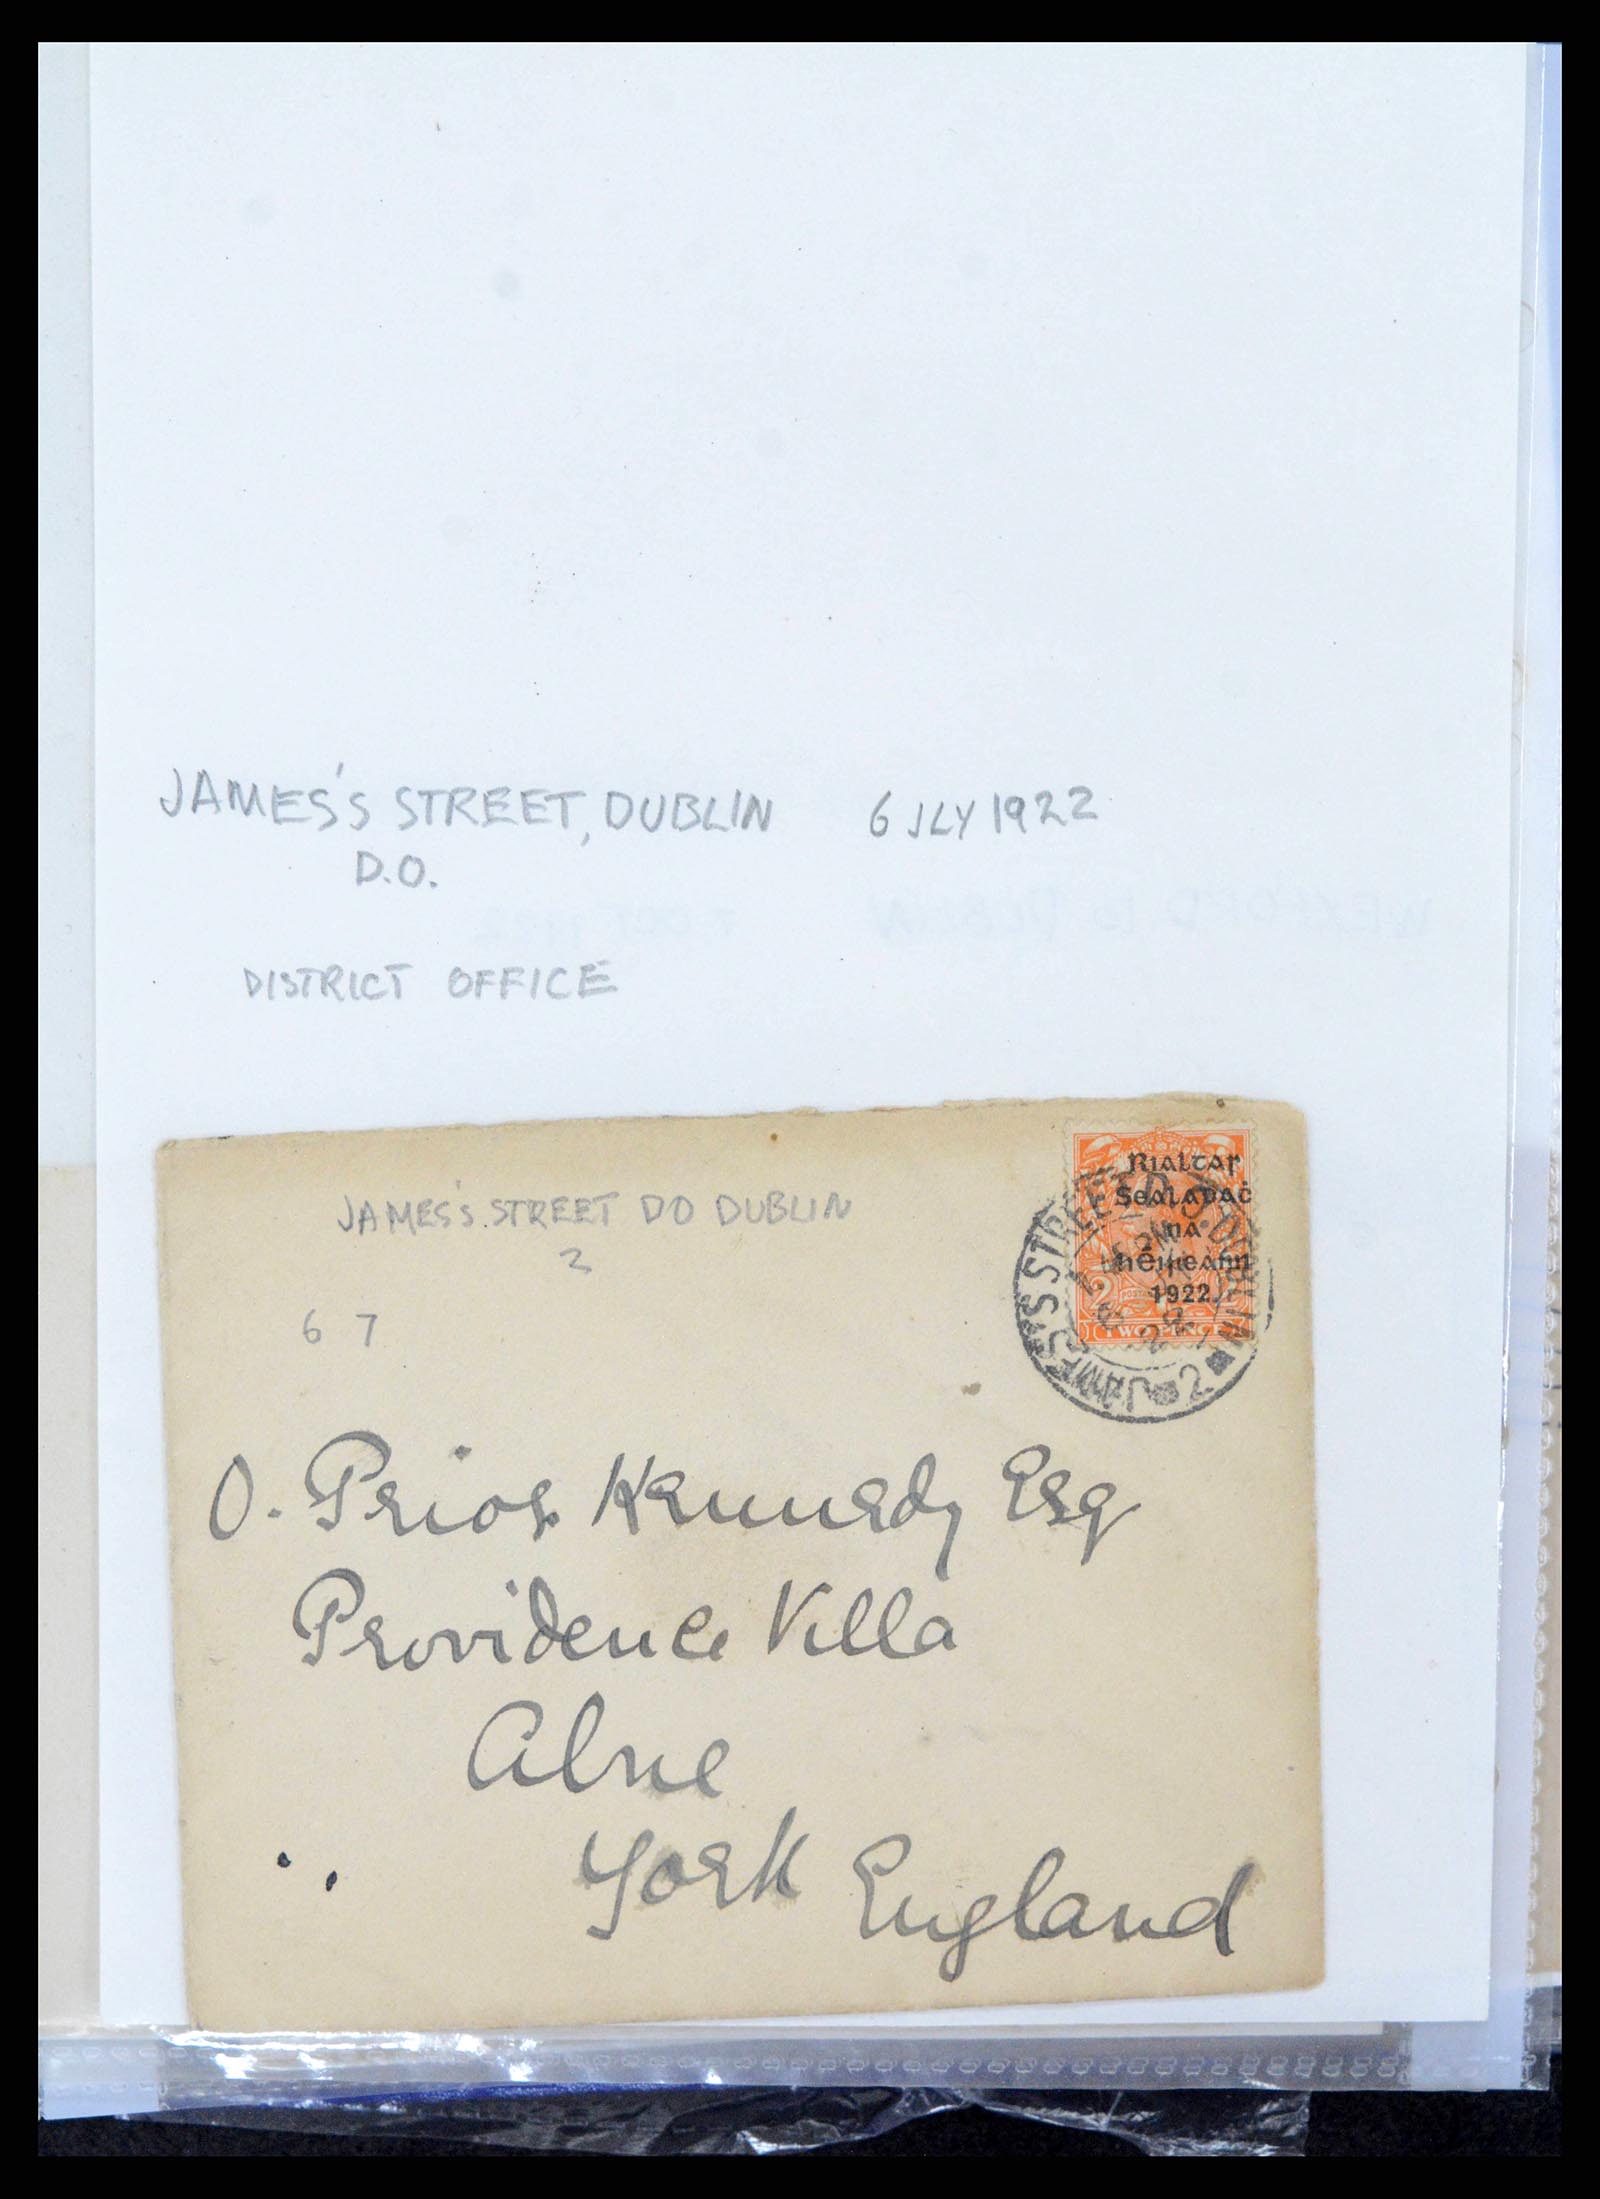 JAMES'S STREET, DUBLIN 6 JLY 1922
D.O.
DISTRICT OFFICE
JAMES'S STREET DO DUBLIN
2
6 7
Rialtar
Sealadaċ
na
hÉireann
1922
2
TWO PENCE
JAMES'S STREET D.O. DUBLIN
2
O. Prior Kennedy Esq
Providence Villa
Alne
York England